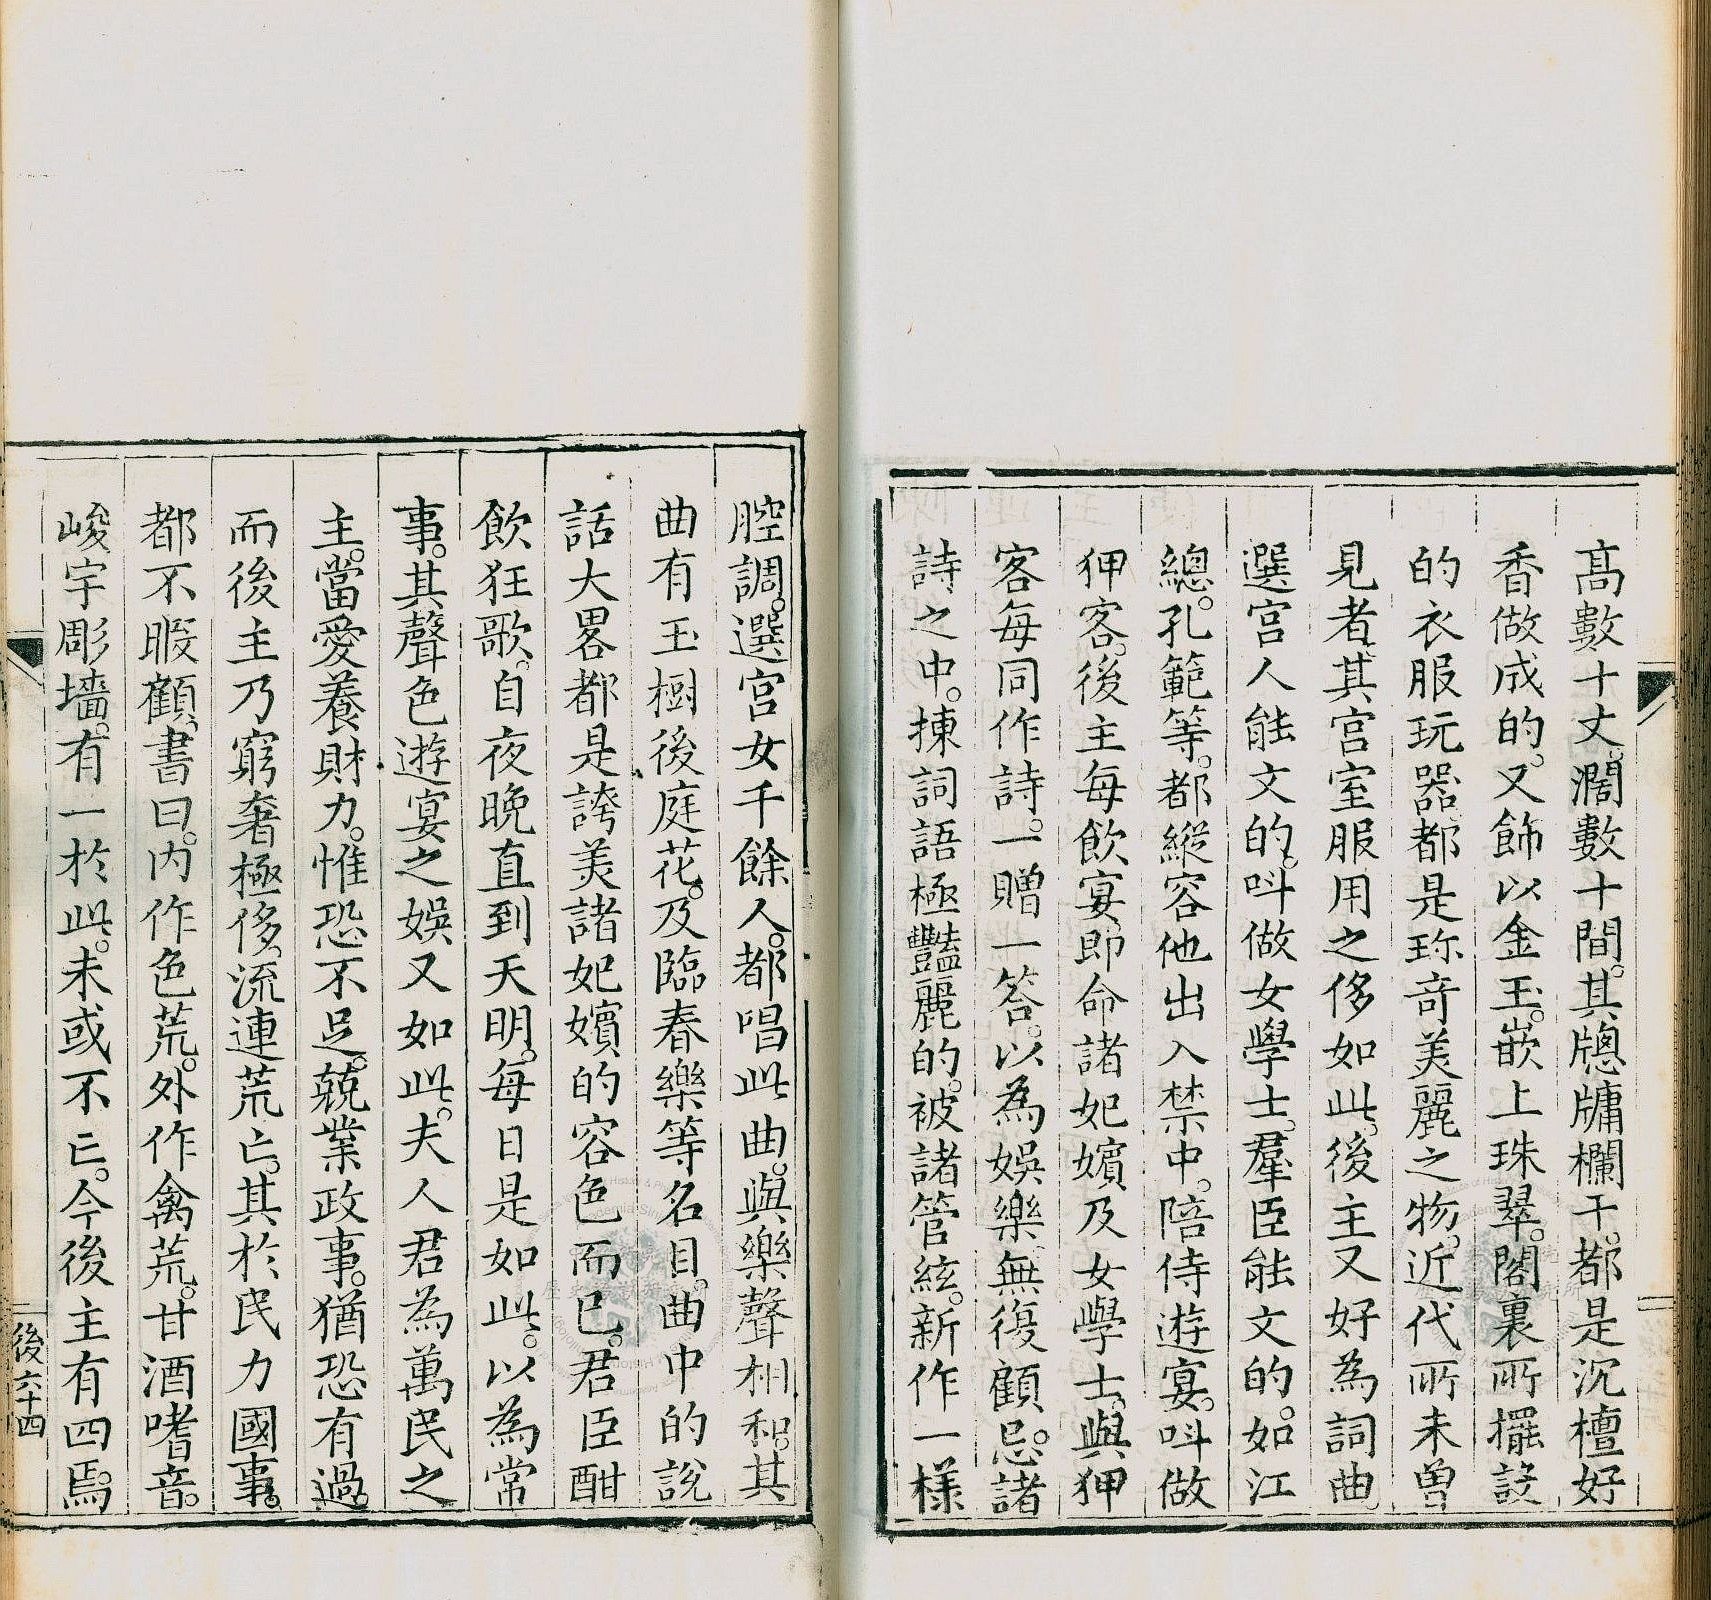 高數十丈。濶數十間。其牕牗欄干。都是沉檀好
香做成的。又飾以金玉。嵌上珠翠。閣裏所擺設
的衣服玩器。都是珎奇美麗之物。近代所未曾
見者。其宮室服用之侈如此。後主又好為詞曲。
選宮人能文的。呌做女學士。羣臣能文的。如江
總。孔範等。都縱容他出入禁中。陪侍遊宴。呌做
狎客。後主每飲宴。即命諸妃嬪及女學士。與狎
客每同作詩。一贈一答。以為娛樂。無復顧忌。諸
詩之中。揀詞語極豔麗的。被諸管絃。新作一樣
腔調。選宮女千餘人。都唱此曲。與樂聲相和。其
曲有玉樹後庭花。及臨春樂等名目。曲中的說
話大畧都是誇美諸妃嬪的容色而已。君臣酣
飲狂歌。自夜晚直到天明。每日是如此。以為常
事。其聲色遊宴之娛又如此。夫人君為萬民之
主。當愛養財力。惟恐不足。兢業政事。猶恐有過。
而後主乃窮奢極侈。流連荒亡。其於民力國事。
都不暇顧。書曰。内作色荒。外作禽荒。甘酒嗜音。
峻宇彫墻。有一於此。未或不亡。今後主有四焉。
後六十四